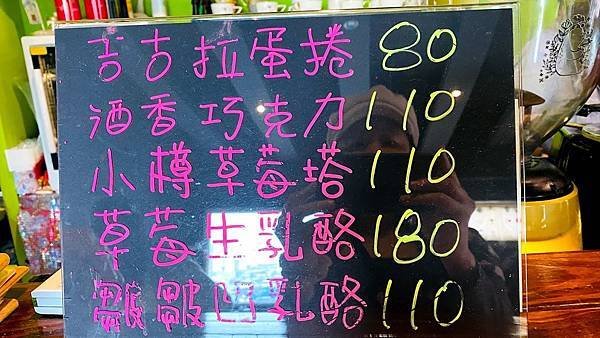 吉古拉蛋捲 80
酒香巧克力 110
小樽草莓塔 110
草莓生乳酪 180
皺皺凹乳酪 110